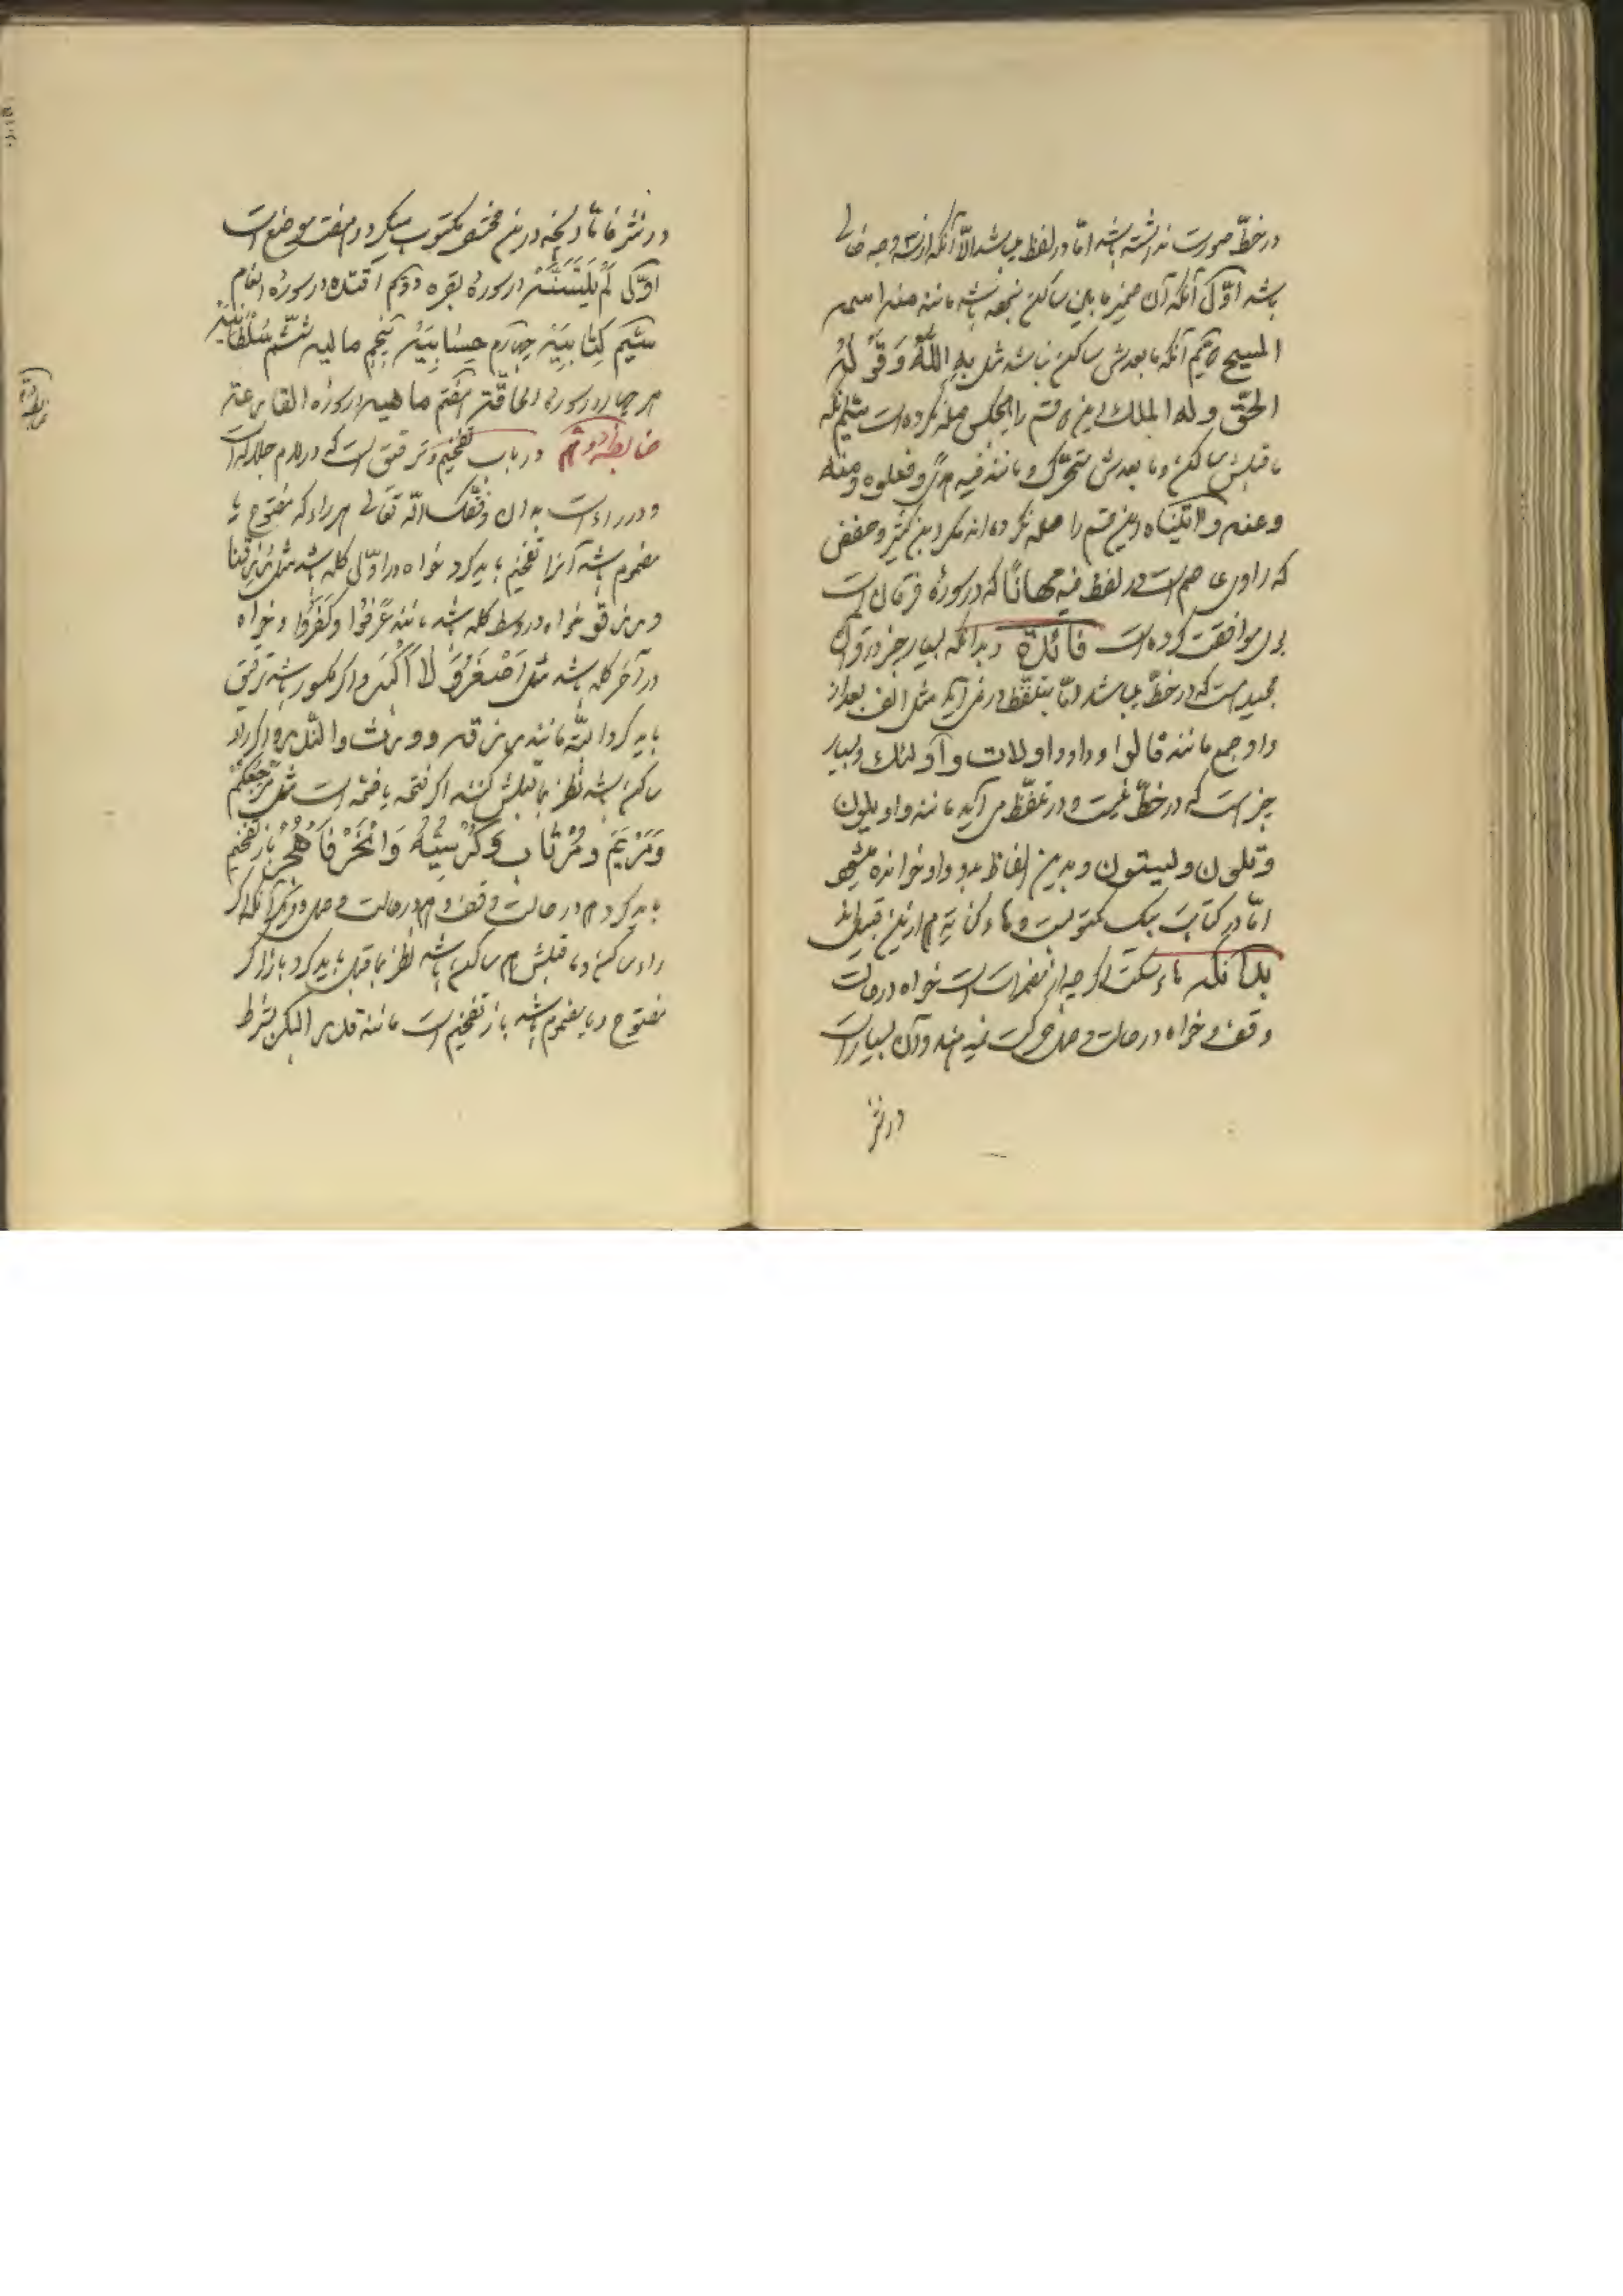 در خطّ صورت نداشته باشد امّا در لفظ میباشد الّا آنکه از سه وجه خالی
باشد اوّل آنکه آن ضمیر ما بین ساکنین نباشد مانند منه اسمه
المسیح دویّم آنکه ما بعدش ساکن نباشد مثل به اللّه وَقَوْلُهُ
الحقّ وله الملك این دو قسم را هیچکس صله نکرده است سیّم آنکه
ما قبلش ساکن و ما بعدش متحرّك مانند فیه هدًی وفعلوه ومنه
وعنه واتیناه این قسم را صله نکرده اند مگر ابن کثیر وحفص
که راوی عاصم است در لفظ فیه مهانًا که در سورهٔ فرقان است
بوی موافقت کرده است فائدة وبدانکه بسیار چیز در قرآن
مجید است که در خطّ میباشد امّا بتلفّظ در نمی آید مثل الف بعد از
واو جمع مانند قالوا و واو اولات و اولئك وبسیار
چیز است که در خطّ نیست و در تلفّظ می آید مانند داود یلون
وتلون ولیستون و بدین الفاظ بدو واو خوانده میشود
امّا در کتابت بیك مکتوبست وهاء کنایه هم ازین قبیل اند
بدانکه هاء سکت اگر چه از مضمرات است خواه در حالت
وقف و خواه در حالت وصل حرکت نمیدهند وآن بسیار است
در نثر
در نثر فامّا آنچه درین مختصر مکتوب میگردد هفت موضع است
اوّل لَمْ یَتَسَنَّهْ در سورهٔ بقره دویّم اقتده در سورهٔ انعام
سیّم کِتَابِیَهْ چهارم حِسَابِیَهْ پنجم مالیه ششم سُلْطَانِیَهْ
هر چهار در سورهٔ الحاقّة هفتم ماهیه در سورهٔ القارعة
ضابطهٔ دویّم در باب تفخیم وترقیق است که در لام جلاله است
و در راء است بدان وفّقك اللّه تعالی هر راء که مفتوح یا
مضموم باشد آنرا تفخیم باید کرد خواه در اوّل کلمه باشد مثل رَزَقَنا
ورزقو خواه در وسط کلمه باشد مانند عَرَفُوا وکَفَرُوا وخواه
در آخر کلمه باشد مثل اَصْغَرُ وَ لَا اَکْبَرَ واگر مکسور باشد ترقیق
باید کرد البتّه مانند رزقه و ورث والنّار واگر راء
ساکن باشد نظر بما قبلش کنند اگر فتحه یا ضمّه است مثل مَرْجِعُکُمْ
وَمَرْیَمَ ومُرْتاب وکُرْسِیُّهُ وَانْحَرْ فَاهْجُرْ باز تفخیم
باید کرد هم در حالت وقف و هم در حالت وصل ودیگر آنکه اگر
راء ساکن و ما قبلش هم ساکن باشد نظر بما قبل باید کرد باز اگر
مفتوح و یا مضموم باشد باز تفخیم است مانند قدر الیکن بشرط